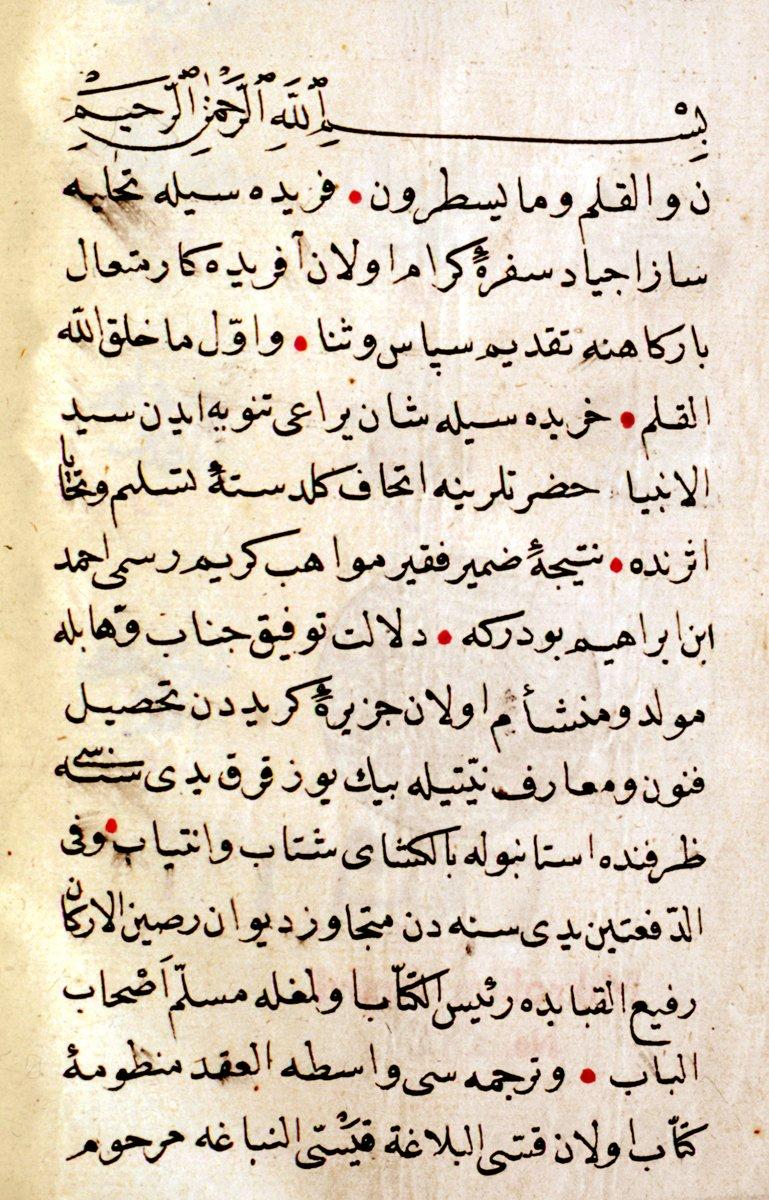 بِسْمِ اللّٰهِ الرَّحْمٰنِ الرَّحِيمِ
ن والقلم وما يسطرون • فريده سيله تحليه
ساز اجياد سفرۀ كرام اولان آفريده كار متعال
باركاهنه تقديم سپاس وثنا • واوّل ما خلق اللّه
القلم • خريده سيله شان يراعى تنويه ايدن سيد
الانبيا حضرتلرينه اتحاف كلدستۀ تسليم وتحايا
اثرنده • نتيجۀ ضمير فقير مواهب كريم رسمى احمد
ابن ابراهيم بودركه • دلالت توفيق جناب وهّابله
مولد ومنشأم اولان جزيرۀ كريددن تحصيل
فنون ومعارف نيّتيله بيك يوز قرق يدى سنه سى
ظرفنده استانبوله بالكشاى شتاب وانتياب • وفى
الدّفعتين يدى سنه دن متجاوز ديوان رصين الاركان
رفيع القبابده رئيس الكتّاب اولمغله مسلّم اَصْحاب
الباب • وترجمه سى واسطه العقد منظومۀ
كتّاب اولان قسّى البلاغة قيْسّى النباغه مرحوم